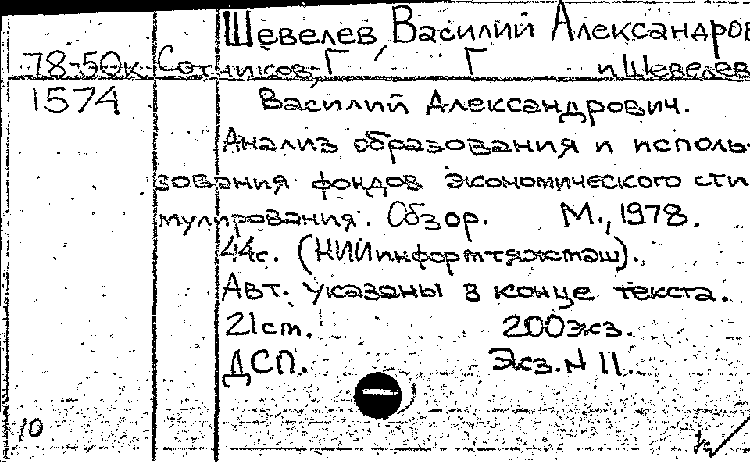 Шевелев, Василий Александров
78-50к Сотников, Г Г и Шевелев
1574 Василий Александрович.
Анализ образования и исполь-
зования фондов экономического сти
мулирования. Обзор. М., 1978.
44с. (НИИинформтяжмаш).
Авт. указаны в конце текста.
21см. 200экз.
ДСП. Экз. N 11.
10